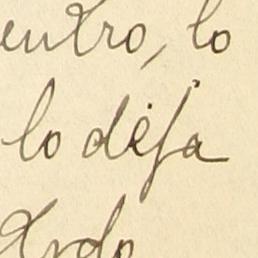 entro, lo
lo deja